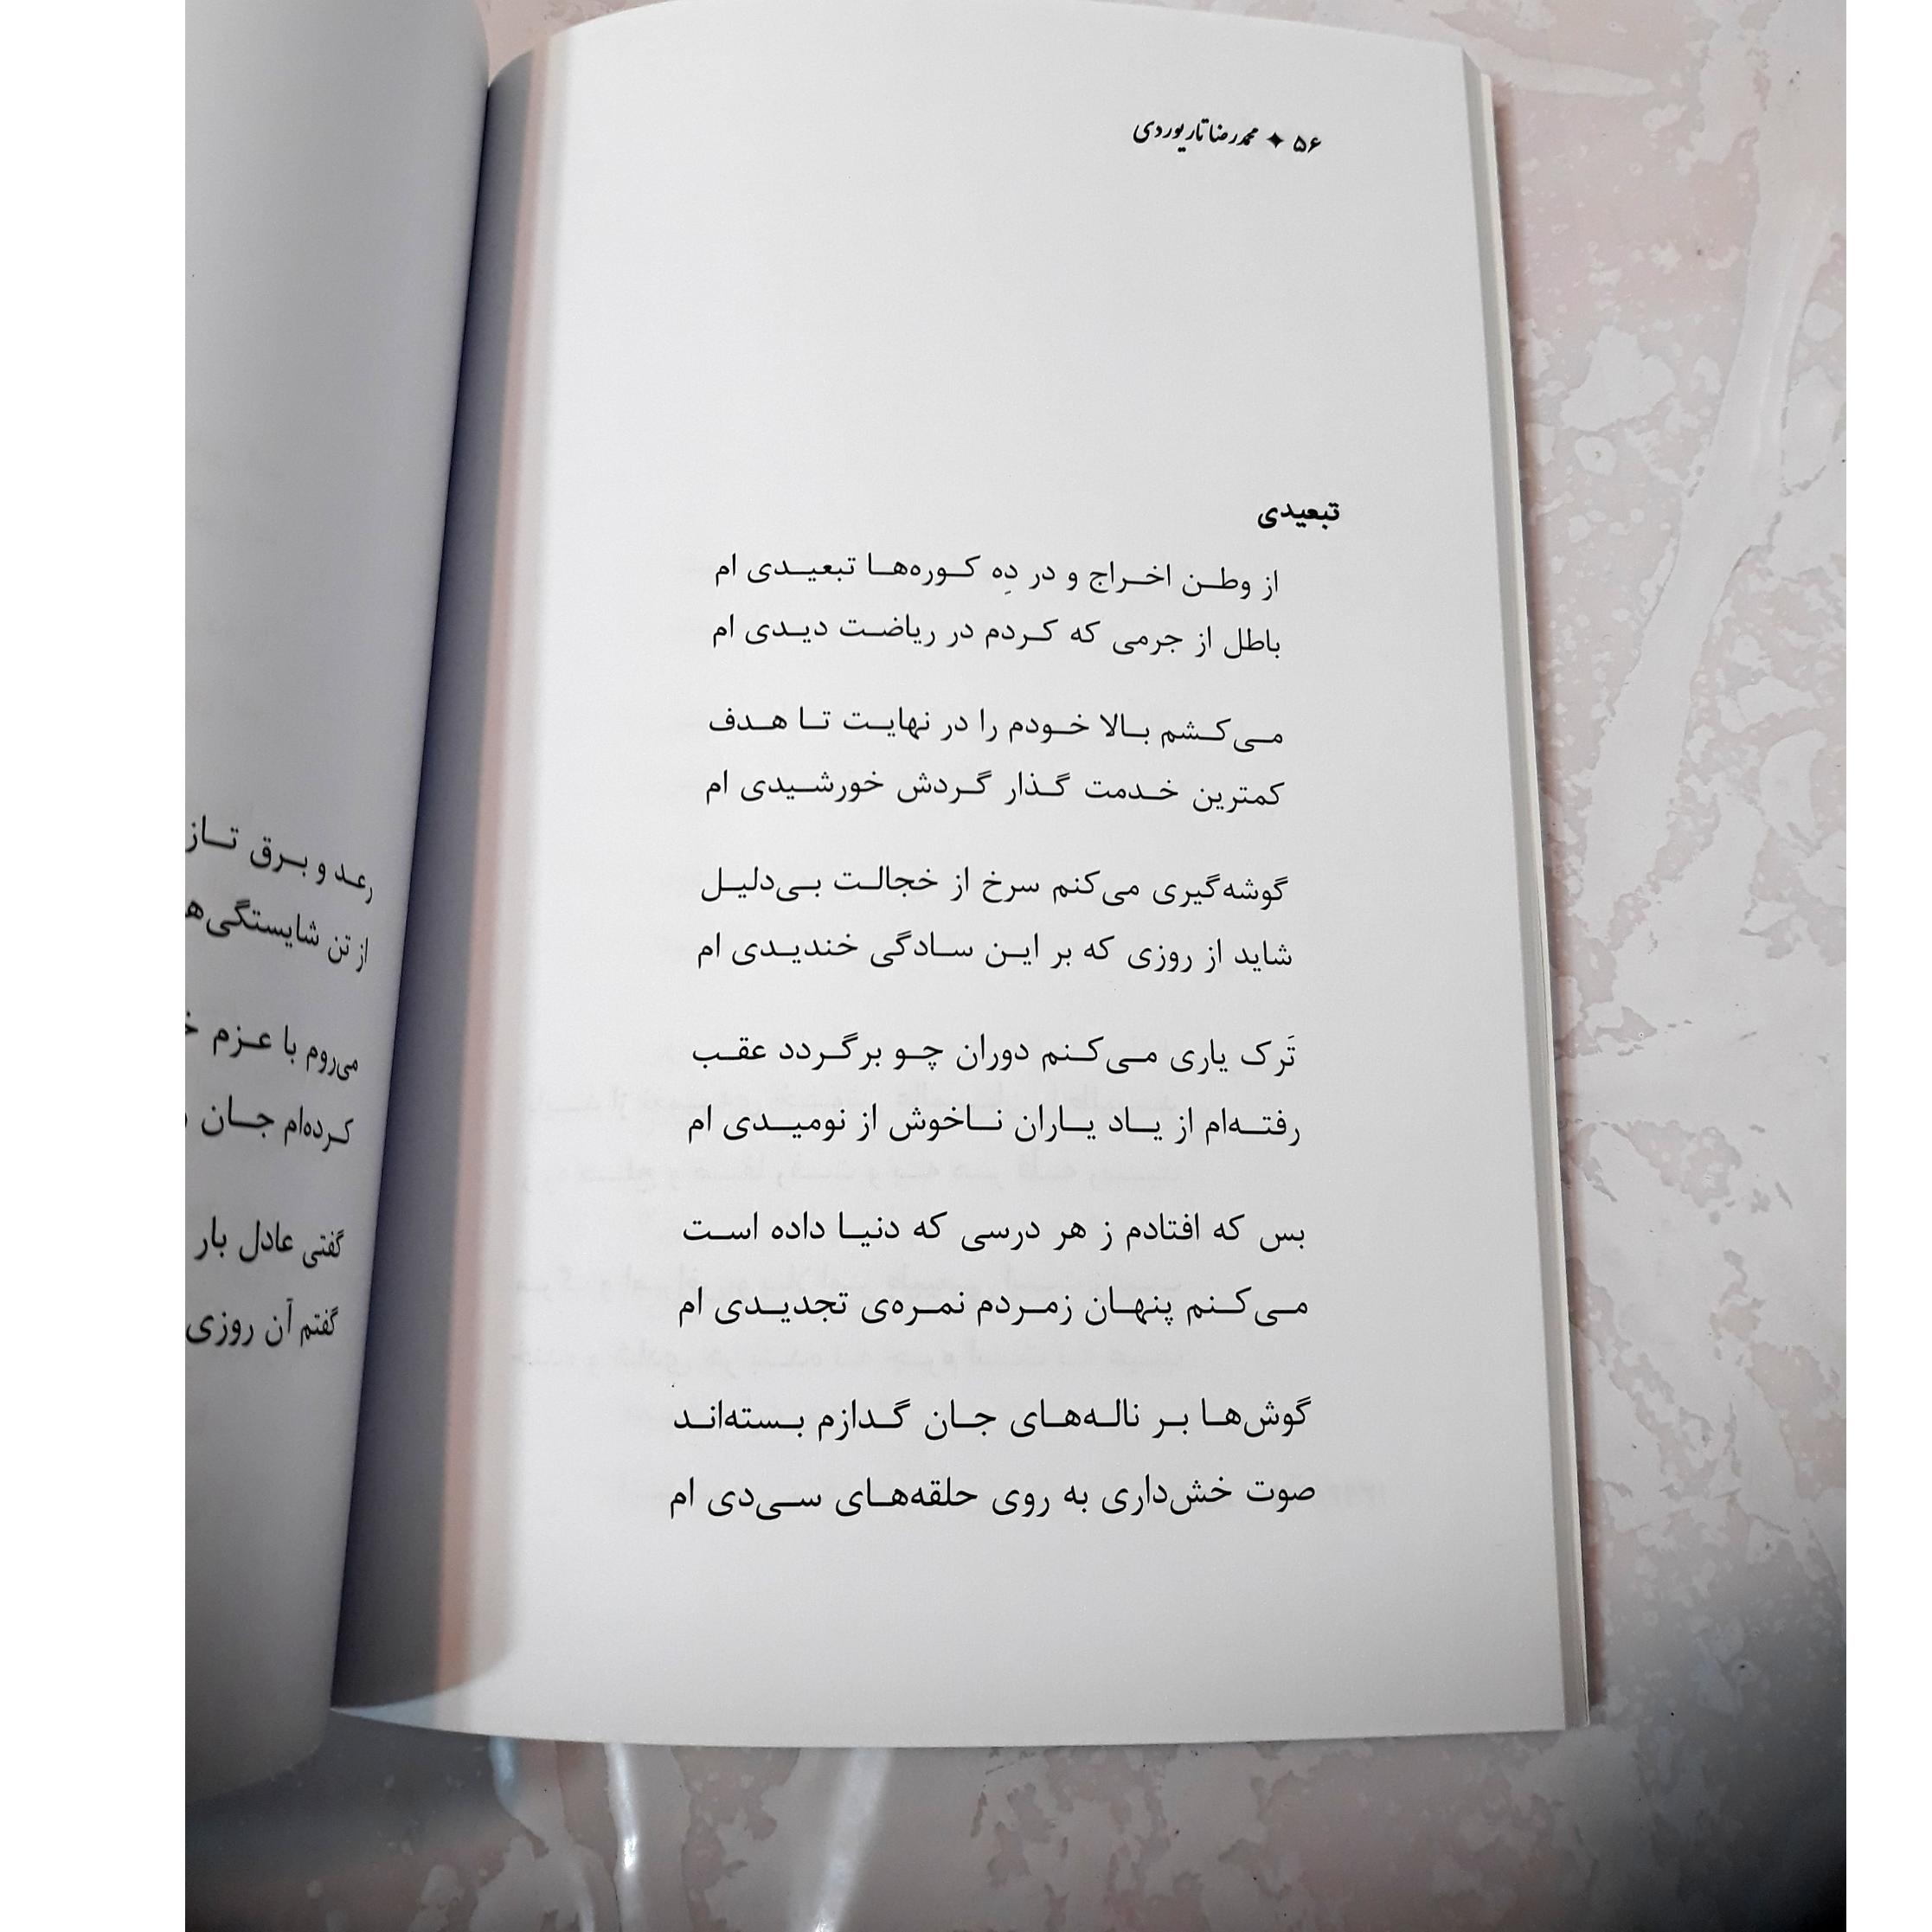 ۵۶ ✦ محمدرضا تاریوردی
تبعیدی
از وطن اخراج و در دِه کوره‌ها تبعیدی ام
باطل از جرمی که کردم در ریاضت دیدی ام
می‌کشم بالا خودم را در نهایت تا هدف
کمترین خدمت گذار گردش خورشیدی ام
گوشه‌گیری می‌کنم سرخ از خجالت بی‌دلیل
شاید از روزی که بر این سادگی خندیدی ام
تَرک یاری می‌کنم دوران چو برگردد عقب
رفته‌ام از یاد یاران ناخوش از نومیدی ام
بس که افتادم ز هر درسی که دنیا داده است
می‌کنم پنهان زمردم نمره‌ی تجدیدی ام
گوش‌ها بر ناله‌های جان گدازم بسته‌اند
صوت خش‌داری به روی حلقه‌های سی‌دی ام
رعد و برق
از تن
می‌روم با عزم
کرده‌ام جان
گفتی عادل بار
گفتم آن روزی